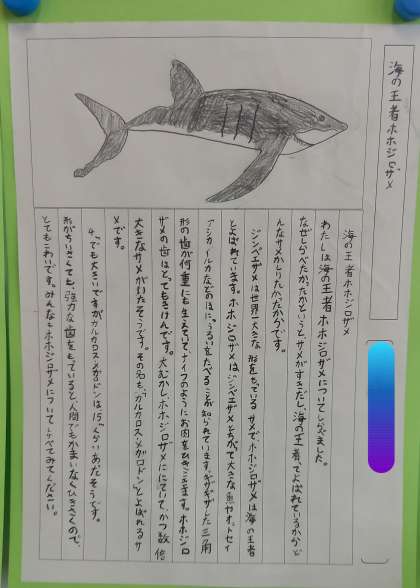 海の王者ホホジロザメ
海の王者ホホジロザメ
わたしは海の王者ホホジロザメについてしらべました。
なぜしらべたかったかというとサメがすきだし、海の王者とよばれているからど
んなサメかしりたかったからです。
ジンベエザメは世界一大きな形をもっているサメで、ホホジロザメは海の王者
とよばれています。ホホジロザメはジンベエザメとちがって大きな魚やオットセイ
アシカ、イルカなどのほにゅうるいをたべることが知られています。ギザギザした三角
形の歯が何重にも生えていて、ナイフのようにお肉をひきさきます。ホホジロ
ザメの歯はとってもきけんです。大むかし、ホホジロザメににていて、かつ数倍
大きなサメがいたそうです。その名も、「カルカロス・メガロドン」とよばれるサ
メです。
でも大きいですがカルカロスメガロドンは15くらいあったそうです。
形がちいさくても、強力な歯をもっていると、人間でもかまいなくひきさくので、
とてもこわいです。みんなもホホジロザメについてしらべてみてください。